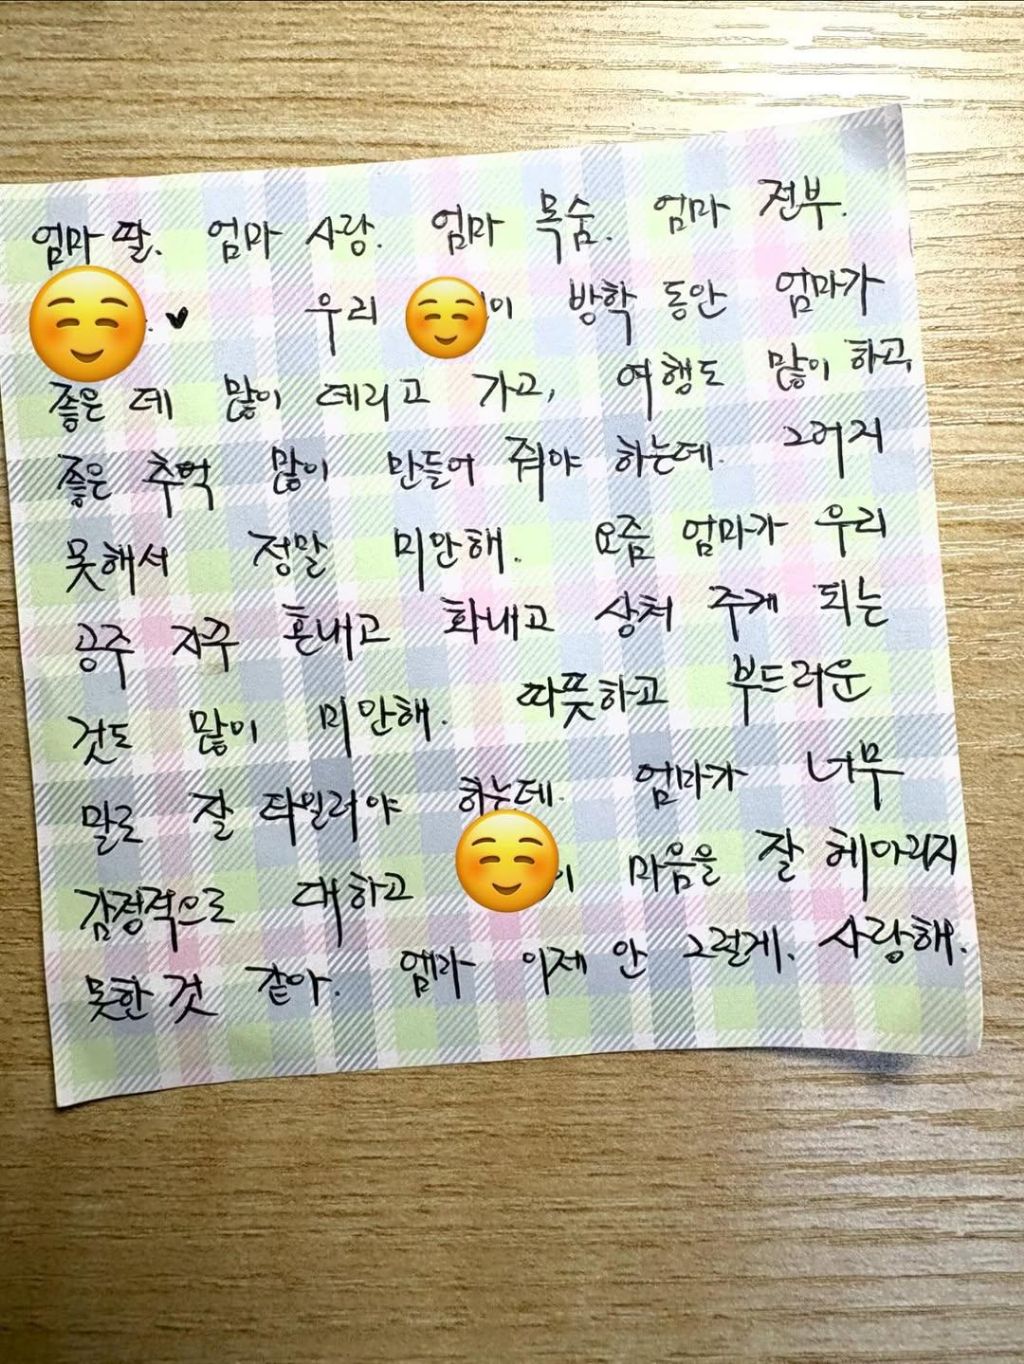 엄마 딸. 엄마 사랑. 엄마 목숨. 엄마 전부.
. ♥ 우리 이 방학 동안 엄마가
좋은 데 많이 데리고 가고, 여행도 많이 하고,
좋은 추억 많이 만들어 줘야 하는데. 그러지
못해서 정말 미안해. 요즘 엄마가 우리
공주 자꾸 혼내고 화내고 상처 주게 되는
것도 많이 미안해. 따뜻하고 부드러운
말로 잘 타일러야 하는데. 엄마가 너무
감정적으로 대하고 이 마음을 잘 헤아리지
못한 것 같아. 엄마 이제 안 그럴게. 사랑해.